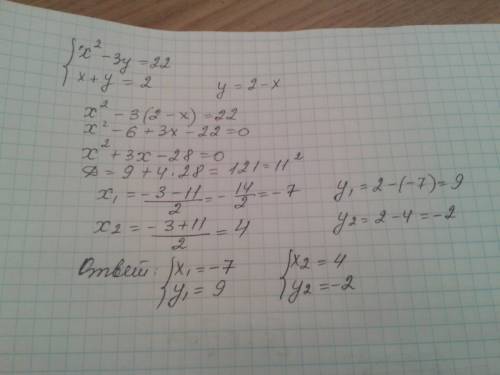 { x² - 3y = 22
x + y = 2     y = 2 - x
x² - 3(2 - x) = 22
x² - 6 + 3x - 22 = 0
x² + 3x - 28 = 0
D = 9 + 4·28 = 121 = 11²
x₁ = (-3 - 11)/2 = -14/2 = -7     y₁ = 2 - (-7) = 9
x₂ = (-3 + 11)/2 = 4     y₂ = 2 - 4 = -2
Ответ: { x₁ = -7     { x₂ = 4
y₁ = 9     y₂ = -2